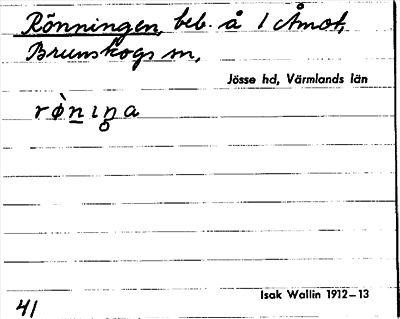 Rönningen, beb. å 1 Åmot,
Brunskogs sn,
Jösse hd, Värmlands län
rø̀n̲ın̥a
Isak Wallin 1912–13
41